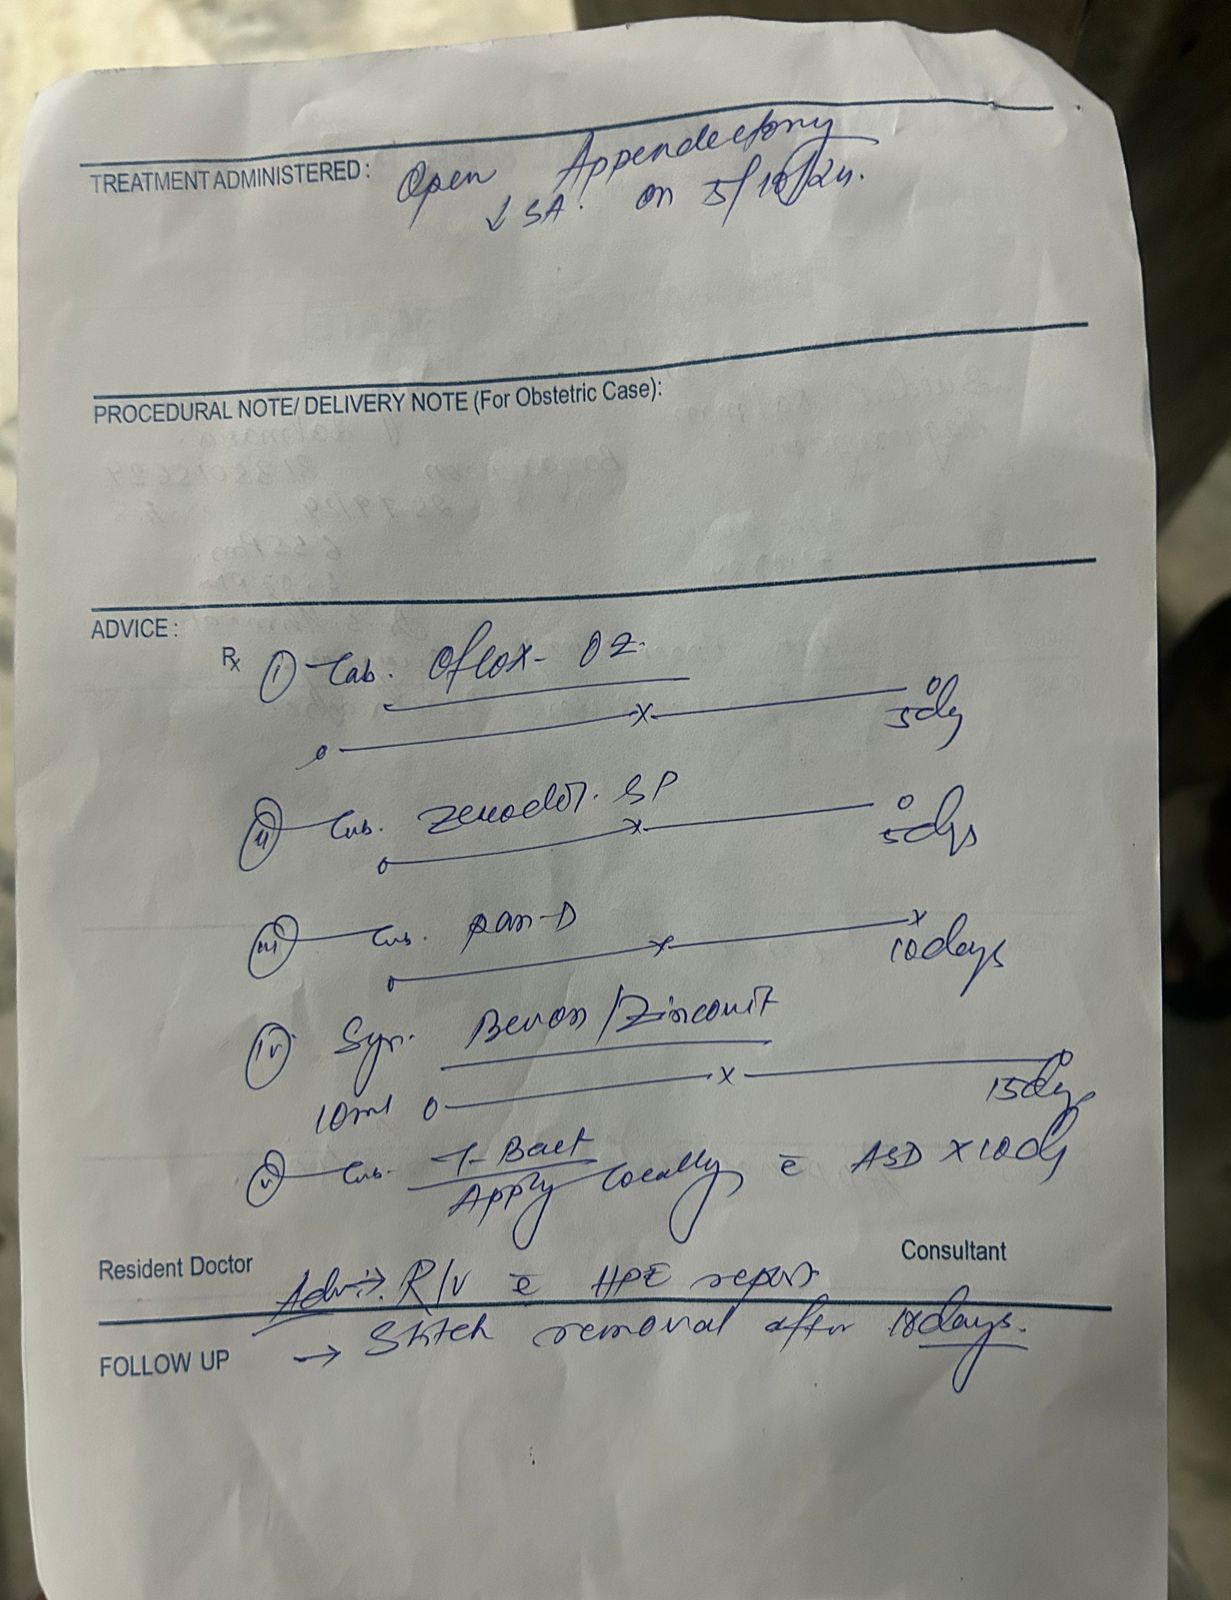 TREATMENT ADMINISTERED : Open Appendectomy
↓ SA. on 5/10/24.
PROCEDURAL NOTE/ DELIVERY NOTE (For Obstetric Case):
ADVICE :
Rx (i) Tab. Oflox - OZ
o — x — o 5 dy
(ii) Tab. SP
o — x — o 5 dys
(iii) Tab. pan-D
o — x — x 10 days
(iv) Syr. Bevon / Zincovit
10ml o — x — o 15 dys
(v) T-Bact
Apply locally c̄ ASD x 10 d
Resident Doctor
Consultant
Adv → R/v c̄ HPE report
FOLLOW UP → Stitch removal after days.